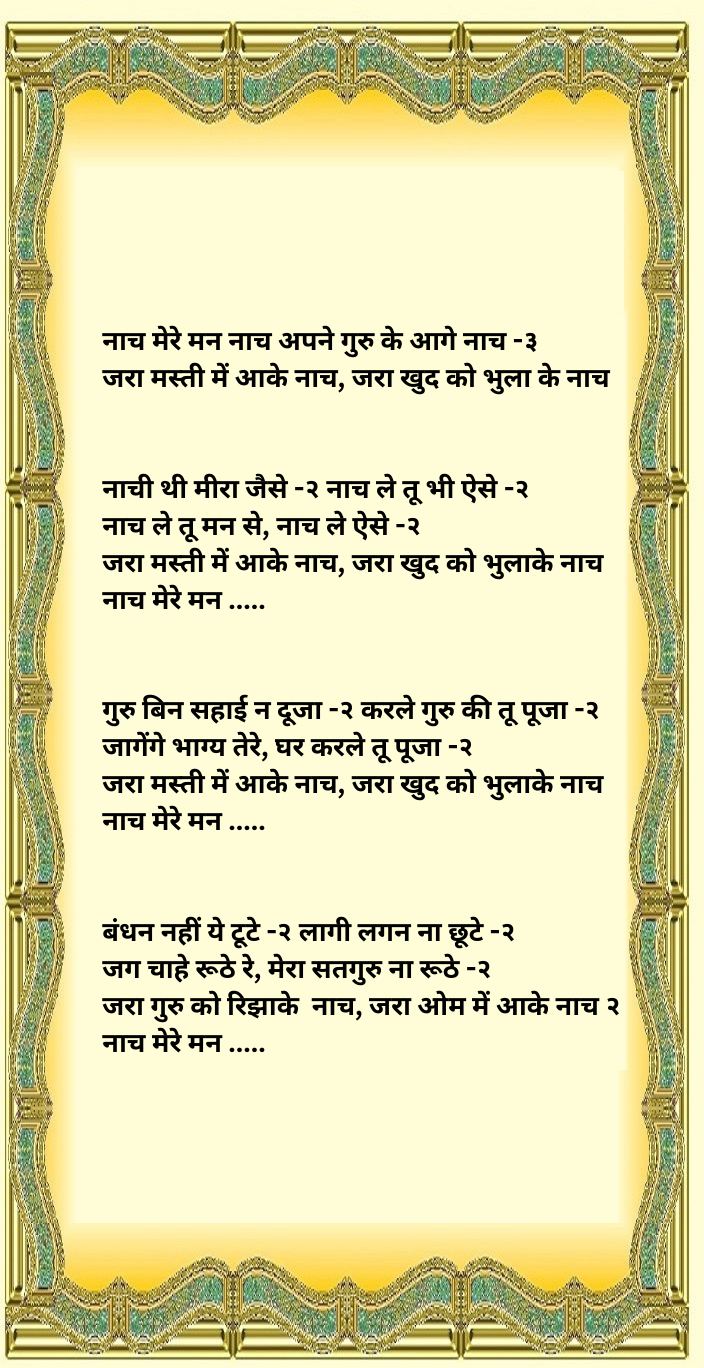 नाच मेरे मन नाच अपने गुरु के आगे नाच -३
जरा मस्ती में आके नाच, जरा खुद को भुला के नाच
नाची थी मीरा जैसे -२ नाच ले तू भी ऐसे -२
नाच ले तू मन से, नाच ले ऐसे -२
जरा मस्ती में आके नाच, जरा खुद को भुलाके नाच
नाच मेरे मन .....
गुरु बिन सहाई न दूजा -२ करले गुरु की तू पूजा -२
जागेंगे भाग्य तेरे, घर करले तू पूजा -२
जरा मस्ती में आके नाच, जरा खुद को भुलाके नाच
नाच मेरे मन .....
बंधन नहीं ये टूटे -२ लागी लगन ना छूटे -२
जग चाहे रूठे रे, मेरा सतगुरु ना रूठे -२
जरा गुरु को रिझाके  नाच, जरा ओम में आके नाच २
नाच मेरे मन .....